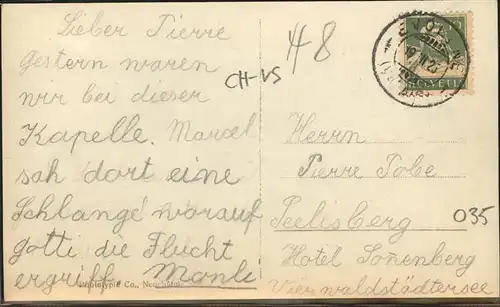 Lieber Pierre
gestern waren
wir bei dieser
Kapelle. Marcel
sah dort eine
Schlange worauf
Gotti die Flucht
ergriff.
Phototypie Co., Neuchâtel
48
CH-VS
HELVETIA
Herrn
Pierre Tobe
Seelisberg
035
Hotel Sonenberg
Vierwaldstädtersee